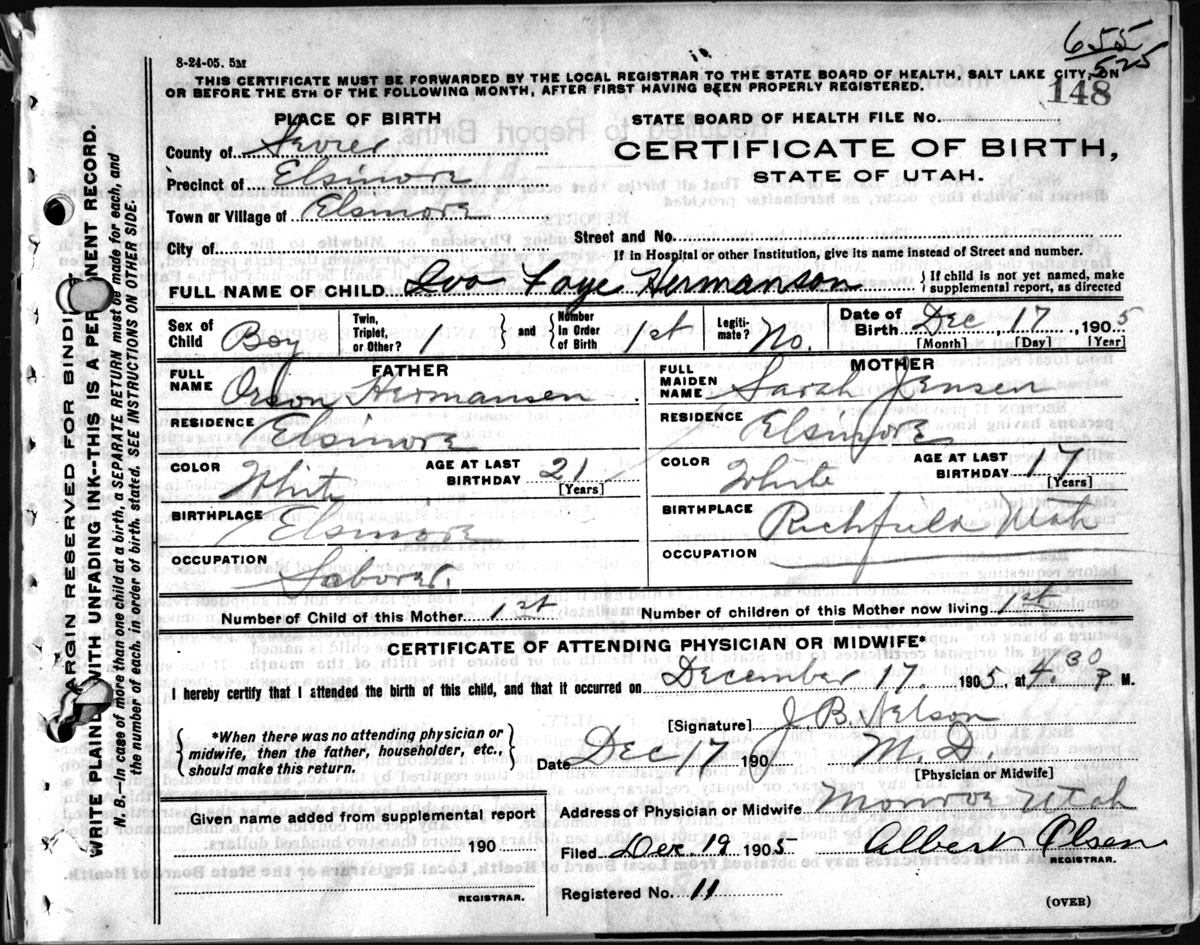 655
525
8-24-05. 5M
THIS CERTIFICATE MUST BE FORWARDED BY THE LOCAL REGISTRAR TO THE STATE BOARD OF HEALTH, SALT LAKE CITY, ON
OR BEFORE THE 5TH OF THE FOLLOWING MONTH, AFTER FIRST HAVING BEEN PROPERLY REGISTERED.
148
PLACE OF BIRTH
STATE BOARD OF HEALTH FILE No.
County of Sevier
CERTIFICATE OF BIRTH,
Precinct of Elsinore
STATE OF UTAH.
Town or Village of Elsinore
Street and No.
City of
If in Hospital or other Institution, give its name instead of Street and number.
FULL NAME OF CHILD Faye Hermanson
If child is not yet named, make supplemental report, as directed
Sex of Child Boy
Twin, Triplet, or Other? 1 and Number in Order of Birth 1st
Legitimate? No.
Date of Birth Dec 17, 1905
[Month] [Day] [Year]
FATHER
FULL NAME Orson Hermansen
MOTHER
FULL MAIDEN NAME Sarah Jensen
RESIDENCE Elsinore
RESIDENCE Elsinore
COLOR White
AGE AT LAST BIRTHDAY 21
[Years]
COLOR White
AGE AT LAST BIRTHDAY 17
[Years]
BIRTHPLACE Elsinore
BIRTHPLACE Richfield Utah
OCCUPATION Laborer.
OCCUPATION
Number of Child of this Mother 1st
Number of children of this Mother now living 1st
CERTIFICATE OF ATTENDING PHYSICIAN OR MIDWIFE*
I hereby certify that I attended the birth of this child, and that it occurred on December 17. 1905, at 4.30 P M.
*When there was no attending physician or
midwife, then the father, householder, etc.,
should make this return.
[Signature] J B. Nelson
Date Dec 17 1905 M. D.
[Physician or Midwife]
Given name added from supplemental report
190
REGISTRAR.
Address of Physician or Midwife Monroe Utah
Filed Dec. 19 1905 Albert Olsen
REGISTRAR.
Registered No. 11
(OVER)
MARGIN RESERVED FOR BINDING
WRITE PLAINLY WITH UNFADING INK--THIS IS A PERMANENT RECORD.
N. B.—In case of more than one child at a birth, a SEPARATE RETURN must be made for each, and
the number of each, in order of birth, stated. SEE INSTRUCTIONS ON OTHER SIDE.